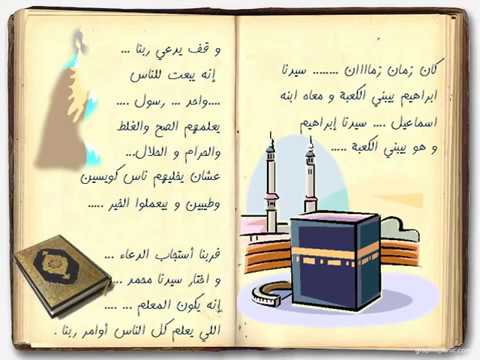 كان زمان زمااااان ........ سيدنا
ابراهيم بيبني الكعبة و معاه ابنه
اسماعيل .... سيدنا إبراهيم
و هو يبني الكعبة .....
و قف يدعي ربنا ...
إنه يبعت للناس
....واحد ... رسول ....
يعلمهم الصح والغلط
والحرام و الحلال...
عشان يخليهم ناس كويسين
وطيبين و يعملوا الخير .....
فربنا أستجاب الدعاء ...
و اختار سيدنا محمد ....
إنه يكون المعلم ... ....
اللي يعلم كل الناس أوامر ربنا .